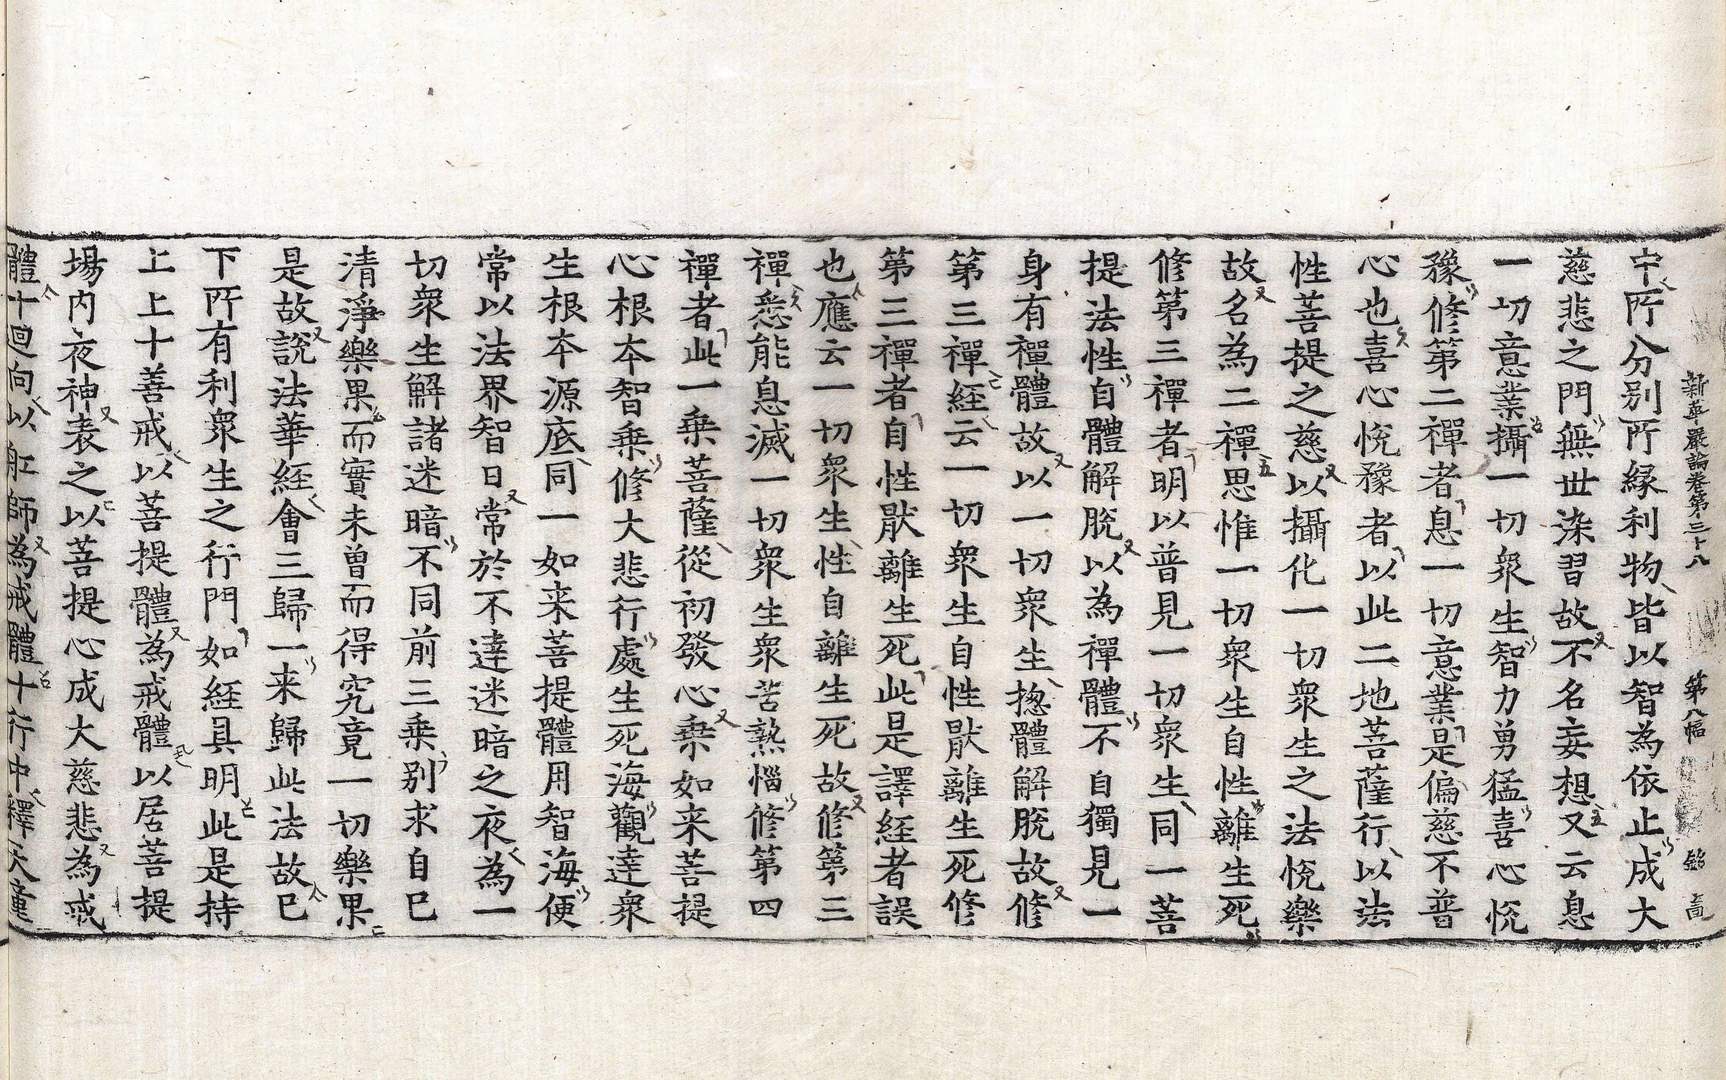 新華嚴論卷第三十八 第八幅
中所分別所緣利物皆以智為依止成大
慈悲之門無世染習故不名妄想又云息
一切意業攝一切衆生智力勇猛喜心悅
豫修第二禪者息一切意業是偏慈不普
心也喜心悅豫者以此二地菩薩行以法
性菩提之慈以攝化一切衆生之法悅樂
故名為二禪思惟一切衆生自性離生死
修第三禪者明以普見一切衆生同一菩
提法性自體解脫以為禪體不自獨見一
身有禪體故以一切衆生揔體解脫故修
第三禪經云一切衆生自性猒離生死修
第三禪者自性猒離生死此是譯經者誤
也應云一切衆生性自離生死故修第三
禪悉能息滅一切衆生衆苦熱惱修第四
禪者此一乗菩薩從初發心乗如来菩提
心根本智乗修大悲行處生死海觀達衆
生根本源底同一如来菩提體用智海便
常以法界智日常於不達迷暗之夜為一
切衆生解諸迷暗不同前三乗別求自巳
清淨樂果而實未曽而得究竟一切樂果
是故說法華經會三歸一来歸此法故巳
下所有利衆生之行門如經具明此是持
上上十善戒以菩提體為戒體以居菩提
場内夜神表之以菩提心成大慈悲為戒
體十迴向以舡師為戒體十行中釋天童